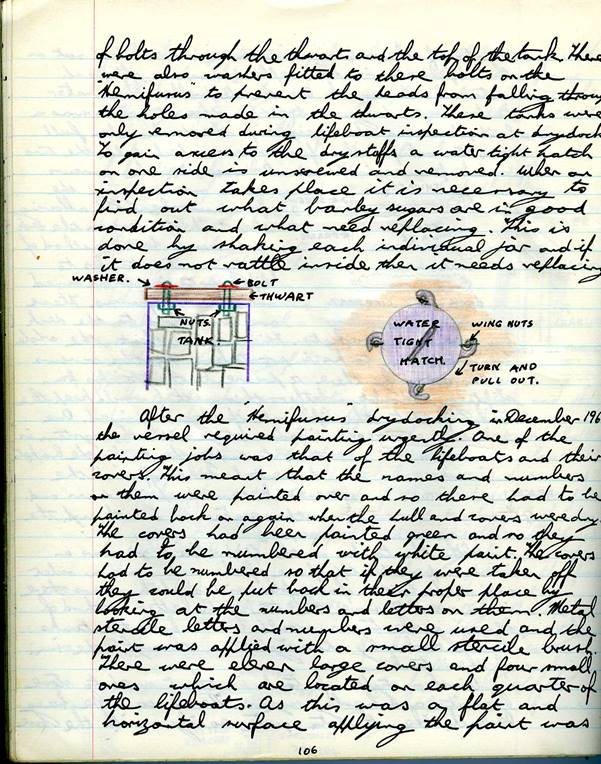 of bolts through the thwarts and the top of the tank. There
were also washers fitted to these bolts on the
"Hemifusus" to prevent the heads from falling throu
the holes made in the thwarts. These tanks were
only removed during lifeboat inspection at drydock
To gain access to the dry staffs a water tight hatch
on one side is unscrewed and removed. When an
inspection takes place it is necessary to
find out what barley sugars are in good
condition and what need replacing. This is
done by shaking each individual jar and if
it does not rattle inside then it needs replacing
WASHER.
BOLT
THWART
NUTS.
TANK.
WATER
TIGHT
HATCH.
WING NUTS
TURN AND
PULL OUT.
After the "Hemifusus" drydocking in December 196
the vessel required painting urgently. One of the
painting jobs was that of the lifeboats and their
covers. This meant that the names and numbers
on them were painted over and so these had to be
painted back on again when the hull and covers were dry.
The covers had been painted green and so they
had to be numbered with white paint. The covers
had to be numbered so that if they were taken off
they could be put back in their proper place by
looking at the numbers and letters on them. Metal
stencile letters and numbers were used and the
paint was applied with a small stencile brush.
There were eleven large covers and four small
ones which are located on each quarter of
the lifeboats. As this was a flat and
horizontal surface applying the paint was
106